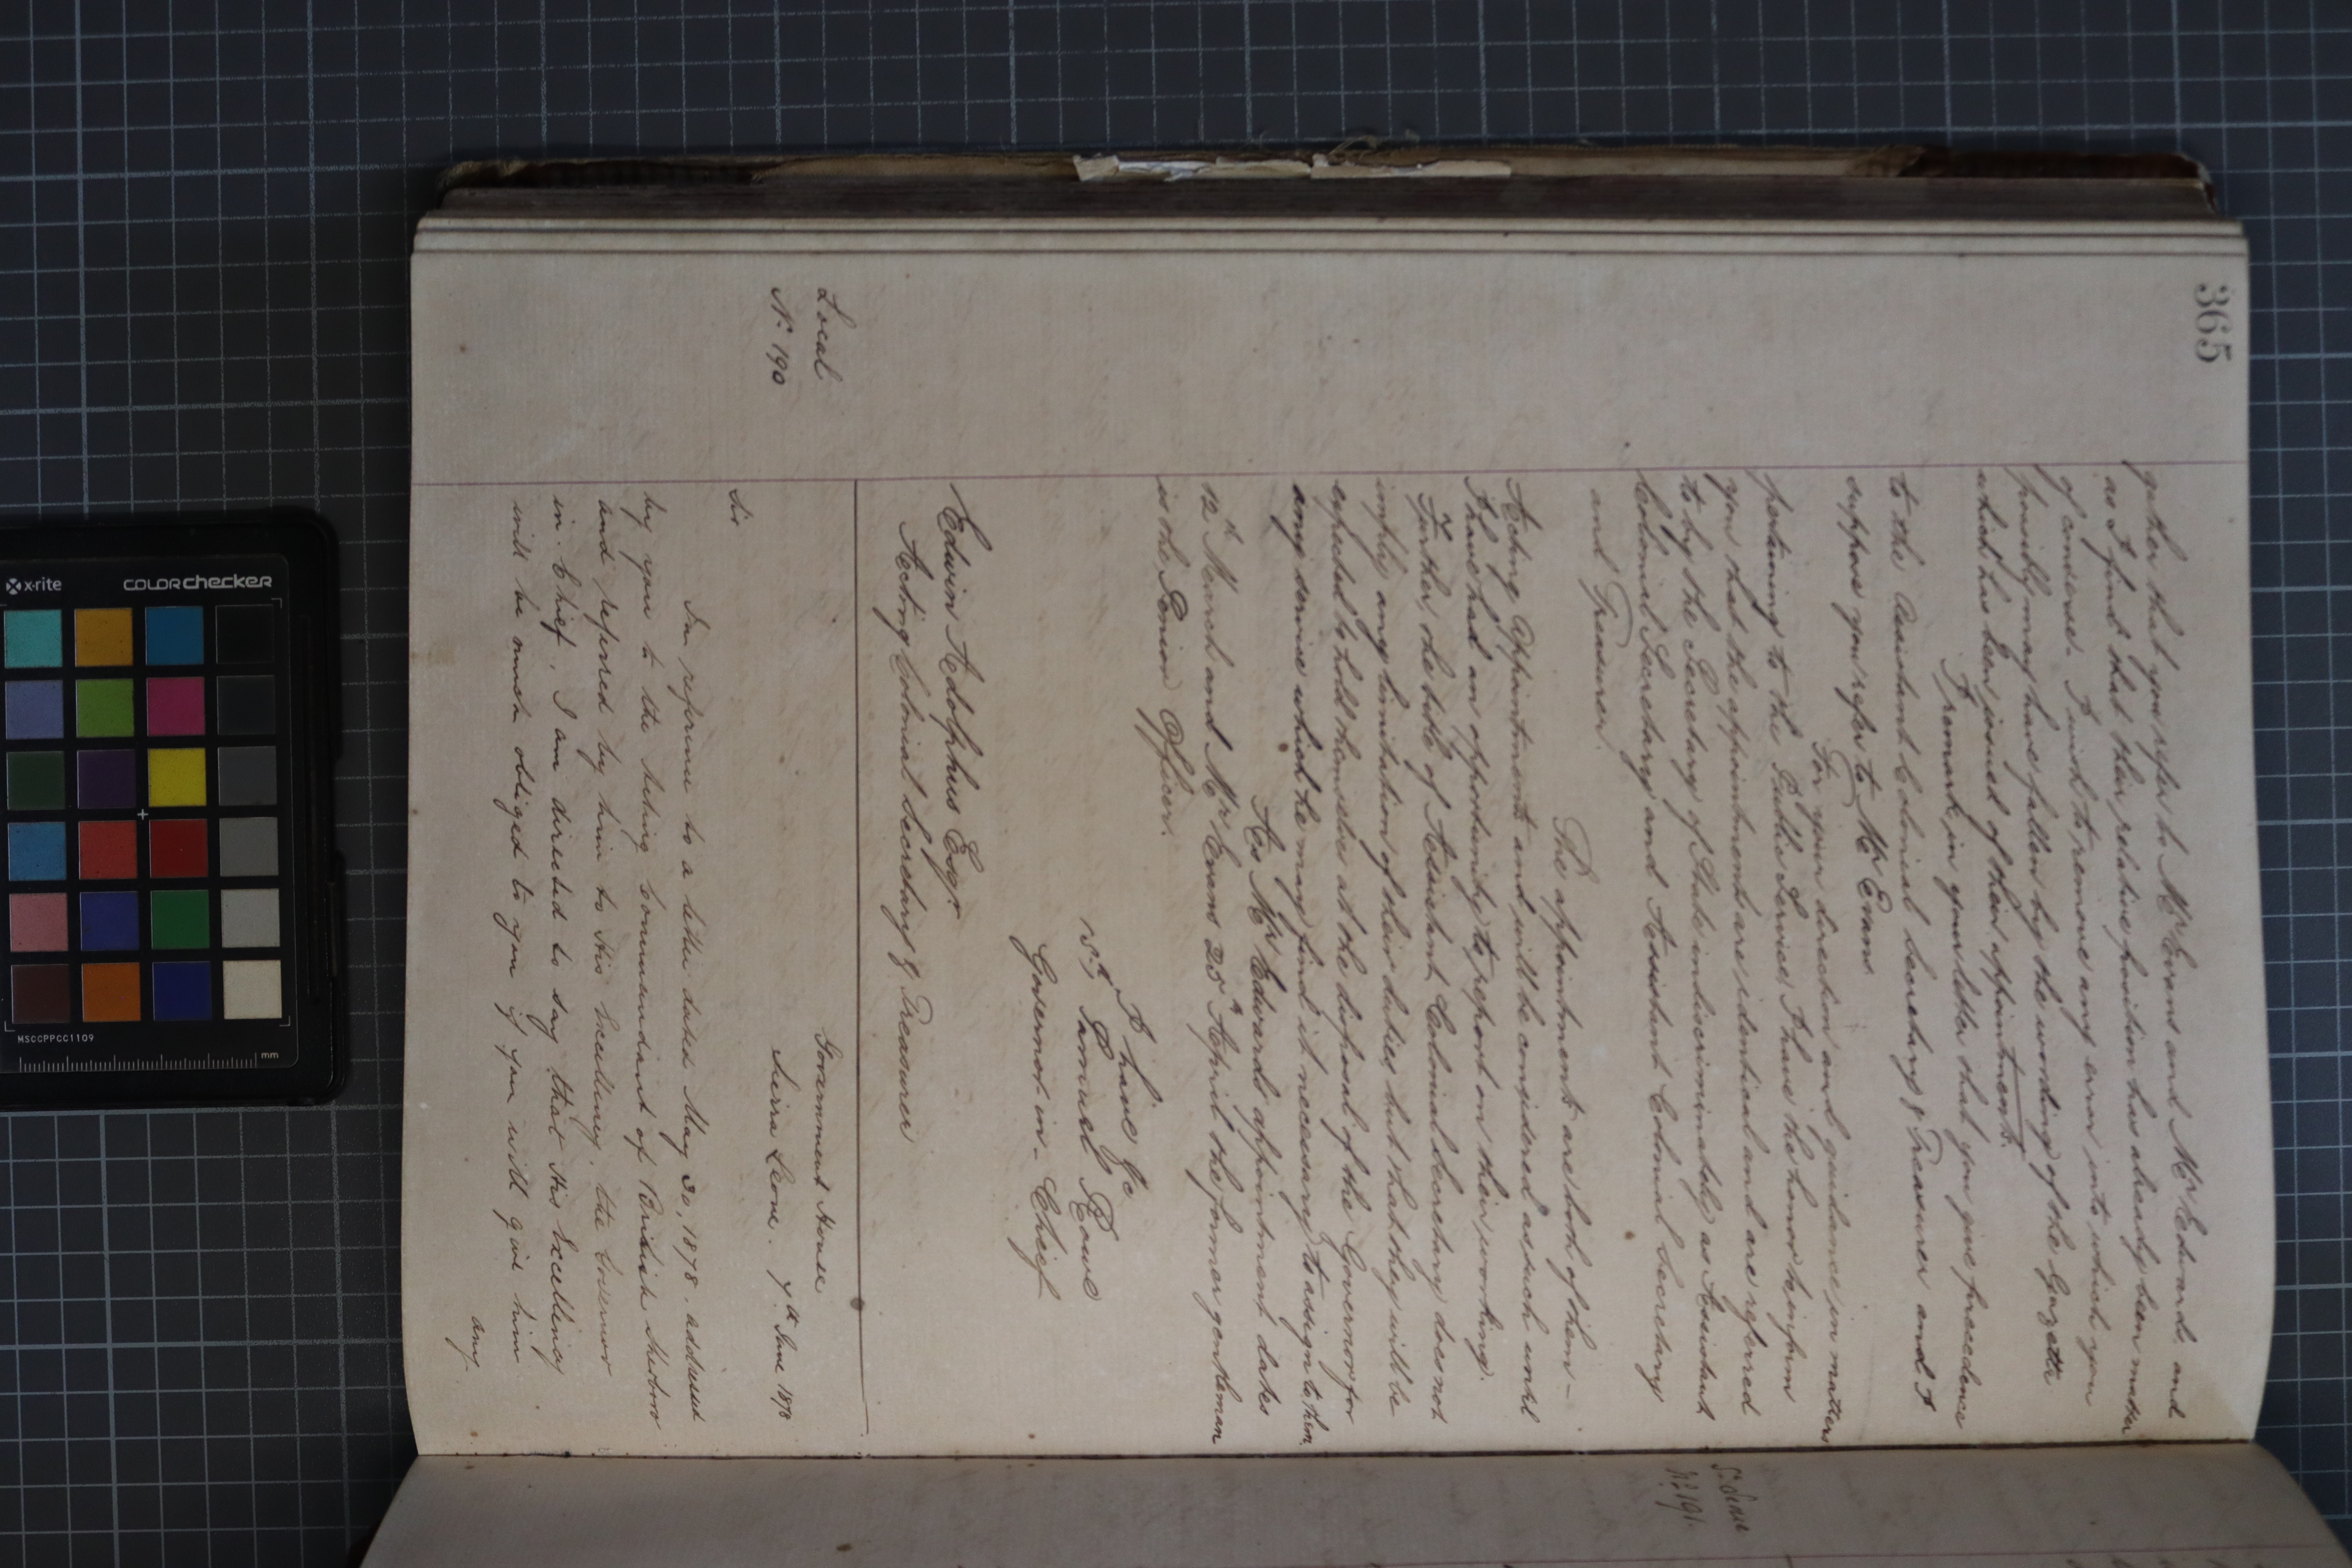 365
gather that you refer to Mr Evans and Mr Edwards and
as I find that their relative position has already been matter
of comment I wish to remove any error into which you
possibly may have fallen by the wording of the Gazette
which has been issued of their appointments.
I remark in your letter that you give precedence
to the Assistant Colonial Secretary & Treasurer and I
suppose you refer to Mr Evans.
For your direction and guidance in matters
pertaining to the Public Service, I have the honor to inform
you that the appointments are identical and are referred
to by the Secretary of State indiscriminately as Assistant
Colonial Secretary and Assistant Colonial Secretary
and Treasurer.
The appointments are both of them
Acting Appointments and will be considered as such until
I have had an opportunity to report on their working.
Further, the title of Assistant Colonial Secretary does not
imply any limitation of their duties, but that they will be
expected to hold themselves at the disposal of the Governor for
any service which he may find it necessary to assign to them.
As Mr Edwards appointment dates
12th March and Mr Evans 25th April the former gentleman
is the Senior Officer.
I have &c
Samuel Rowe
Governor in-Chief
Edwin Adolphus Esqr
Acting Colonial Secretary & Treasurer
Local
No. 190
Government House
Sierra Leone. 7th June 1878
Sir
In reference to a letter dated May 30, 1878. addressed
by you to the Acting Commandant of British Sherbro
and referred by him to His Excellency the Governor
in Chief, I am directed to say that His Excellency
will be much obliged to you if you will give him
any
No. 191.